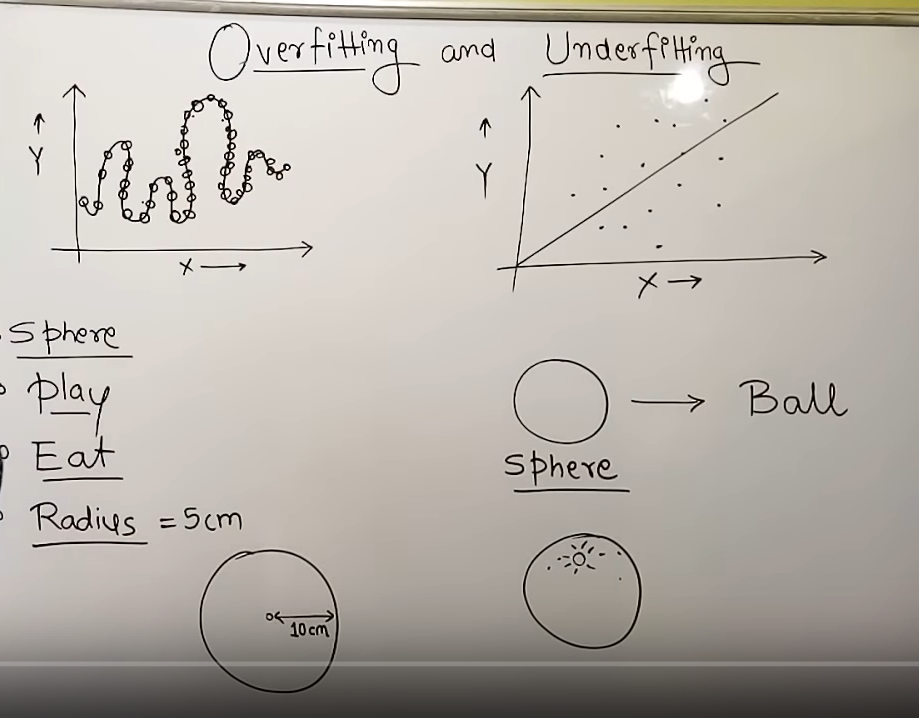 Overfitting and Underfitting
Y
X
Y
X
Sphere
Play
Eat
Radius = 5cm
10cm
Ball
Sphere